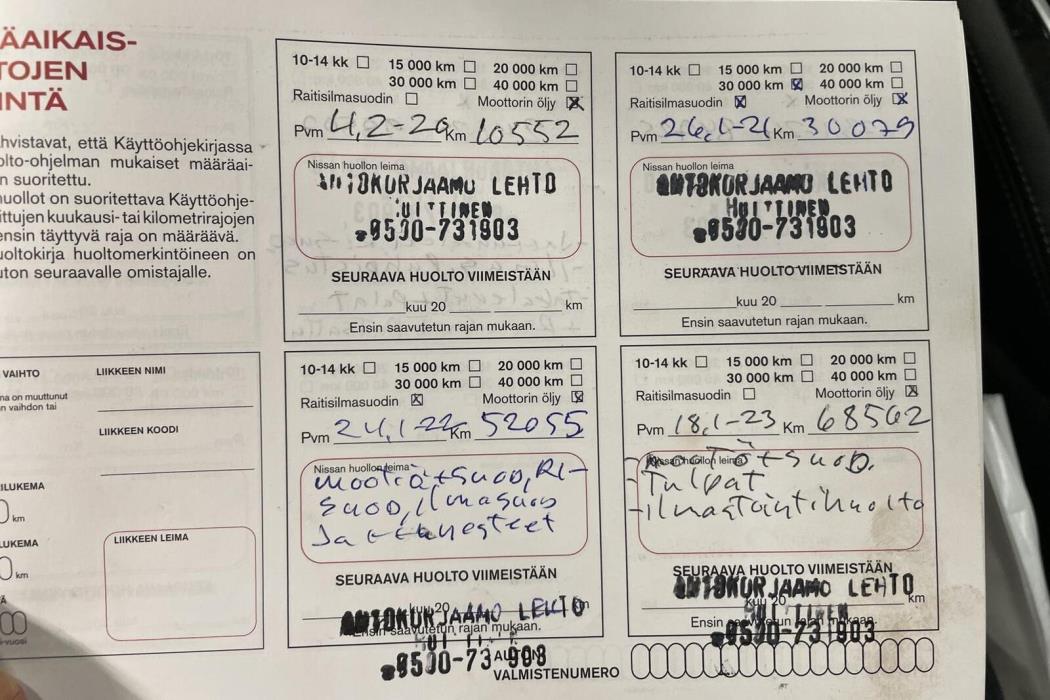 ÄAIKAIS-
TOJEN
INTÄ
hvistavat, että Käyttöohjekirjassa
olto-ohjelman mukaiset määräai-
n suoritettu.
uollot on suoritettava Käyttöohje-
ittujen kuukausi- tai kilometrirajojen
ensin täyttyvä raja on määräävä.
uoltokirja huoltomerkintöineen on
uton seuraavalle omistajalle.
10-14 kk 15 000 km 20 000 km
30 000 km 40 000 km
Raitisilmasuodin Moottorin öljy
Pvm 4,2-20 Km 10552
Nissan huollon leima
AUTOKORJAAMO LEHTO
HUITTINEN
0500-731903
SEURAAVA HUOLTO VIIMEISTÄÄN
kuu 20 km
Ensin saavutetun rajan mukaan.
10-14 kk 15 000 km 20 000 km
30 000 km 40 000 km
Raitisilmasuodin Moottorin öljy
Pvm 26,1-21 Km 30079
Nissan huollon leima
AUTOKORJAAMO LEHTO
HUITTINEN
0500-731903
SEURAAVA HUOLTO VIIMEISTÄÄN
kuu 20 km
Ensin saavutetun rajan mukaan.
VAIHTO
na on muuttunut
n vaihdon tai
LIIKKEEN NIMI
LIIKKEEN KOODI
ILUKEMA
km
LUKEMA
km
LIIKKEEN LEIMA
10-14 kk 15 000 km 20 000 km
30 000 km 40 000 km
Raitisilmasuodin Moottorin öljy
Pvm 24,1-22 Km 52055
Nissan huollon leima
moot.ö+suod, Ri-
suod, ilmasuod
Jarrunesteet
SEURAAVA HUOLTO VIIMEISTÄÄN
kuu 20 km
Ensin saavutetun rajan mukaan.
AUTOKORJAAMO LEHTO
0500-73 903
10-14 kk 15 000 km 20 000 km
30 000 km 40 000 km
Raitisilmasuodin Moottorin öljy
Pvm 18,1-23 Km 68562
Nissan huollon leima
-moot.ö+suod.
-Tulpat
-ilmastointihuolto
SEURAAVA HUOLTO VIIMEISTÄÄN
kuu 20 km
Ensin saavutetun rajan mukaan.
AUTOKORJAAMO LEHTO
HUITTINEN
0500-731903
AUTON
VALMISTENUMERO